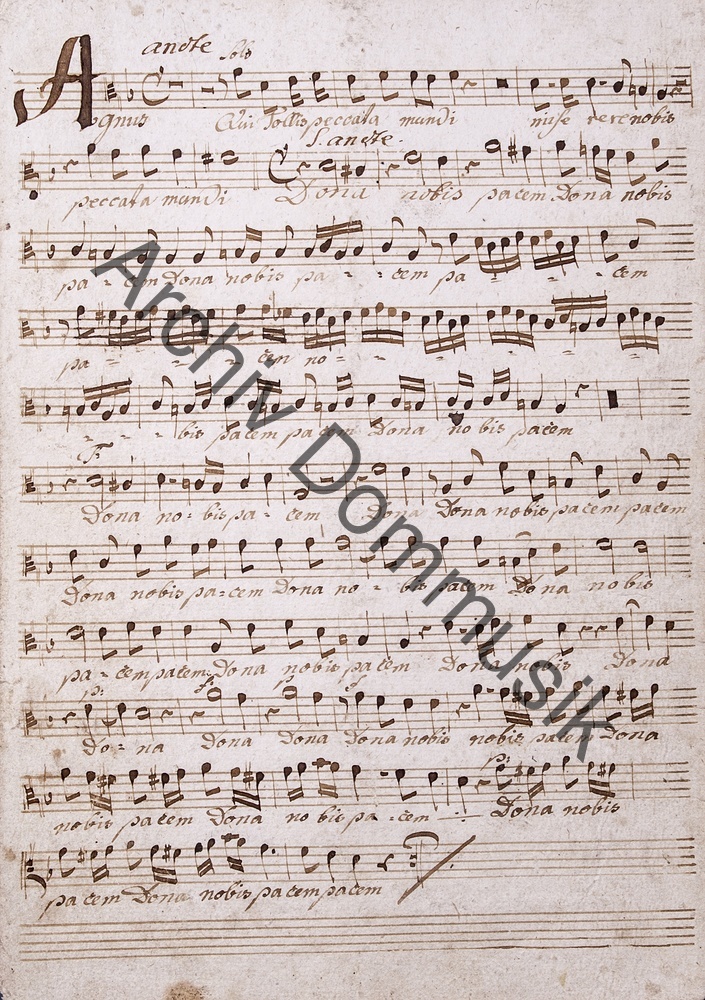 andte Solo
Agnus Qui Tollis peccata mundi mise rere nobis
S. andte.
peccata mundi Dona nobis pacem Dona nobis
pa - cem Dona nobis pa - - cem pa - - - cem
pa - - - cem no - - - -
- - - bis pacem pacem Dona no bis pacem
F:
Dona no - bis pa - cem Dona Dona nobis pacem pacem
Dona nobis pa - cem Dona no - bis pacem Do na no bis
pa - cem pacem Dona nobis pacem Dona nobis Dona
p: f p: f
Do - na Dona Dona Dona nobis nobis pacem Dona
p:
nobis pacem Dona no bis pa - cem Dona nobis
pacem Dona nobis pacem pacem
Archiv Dommusik